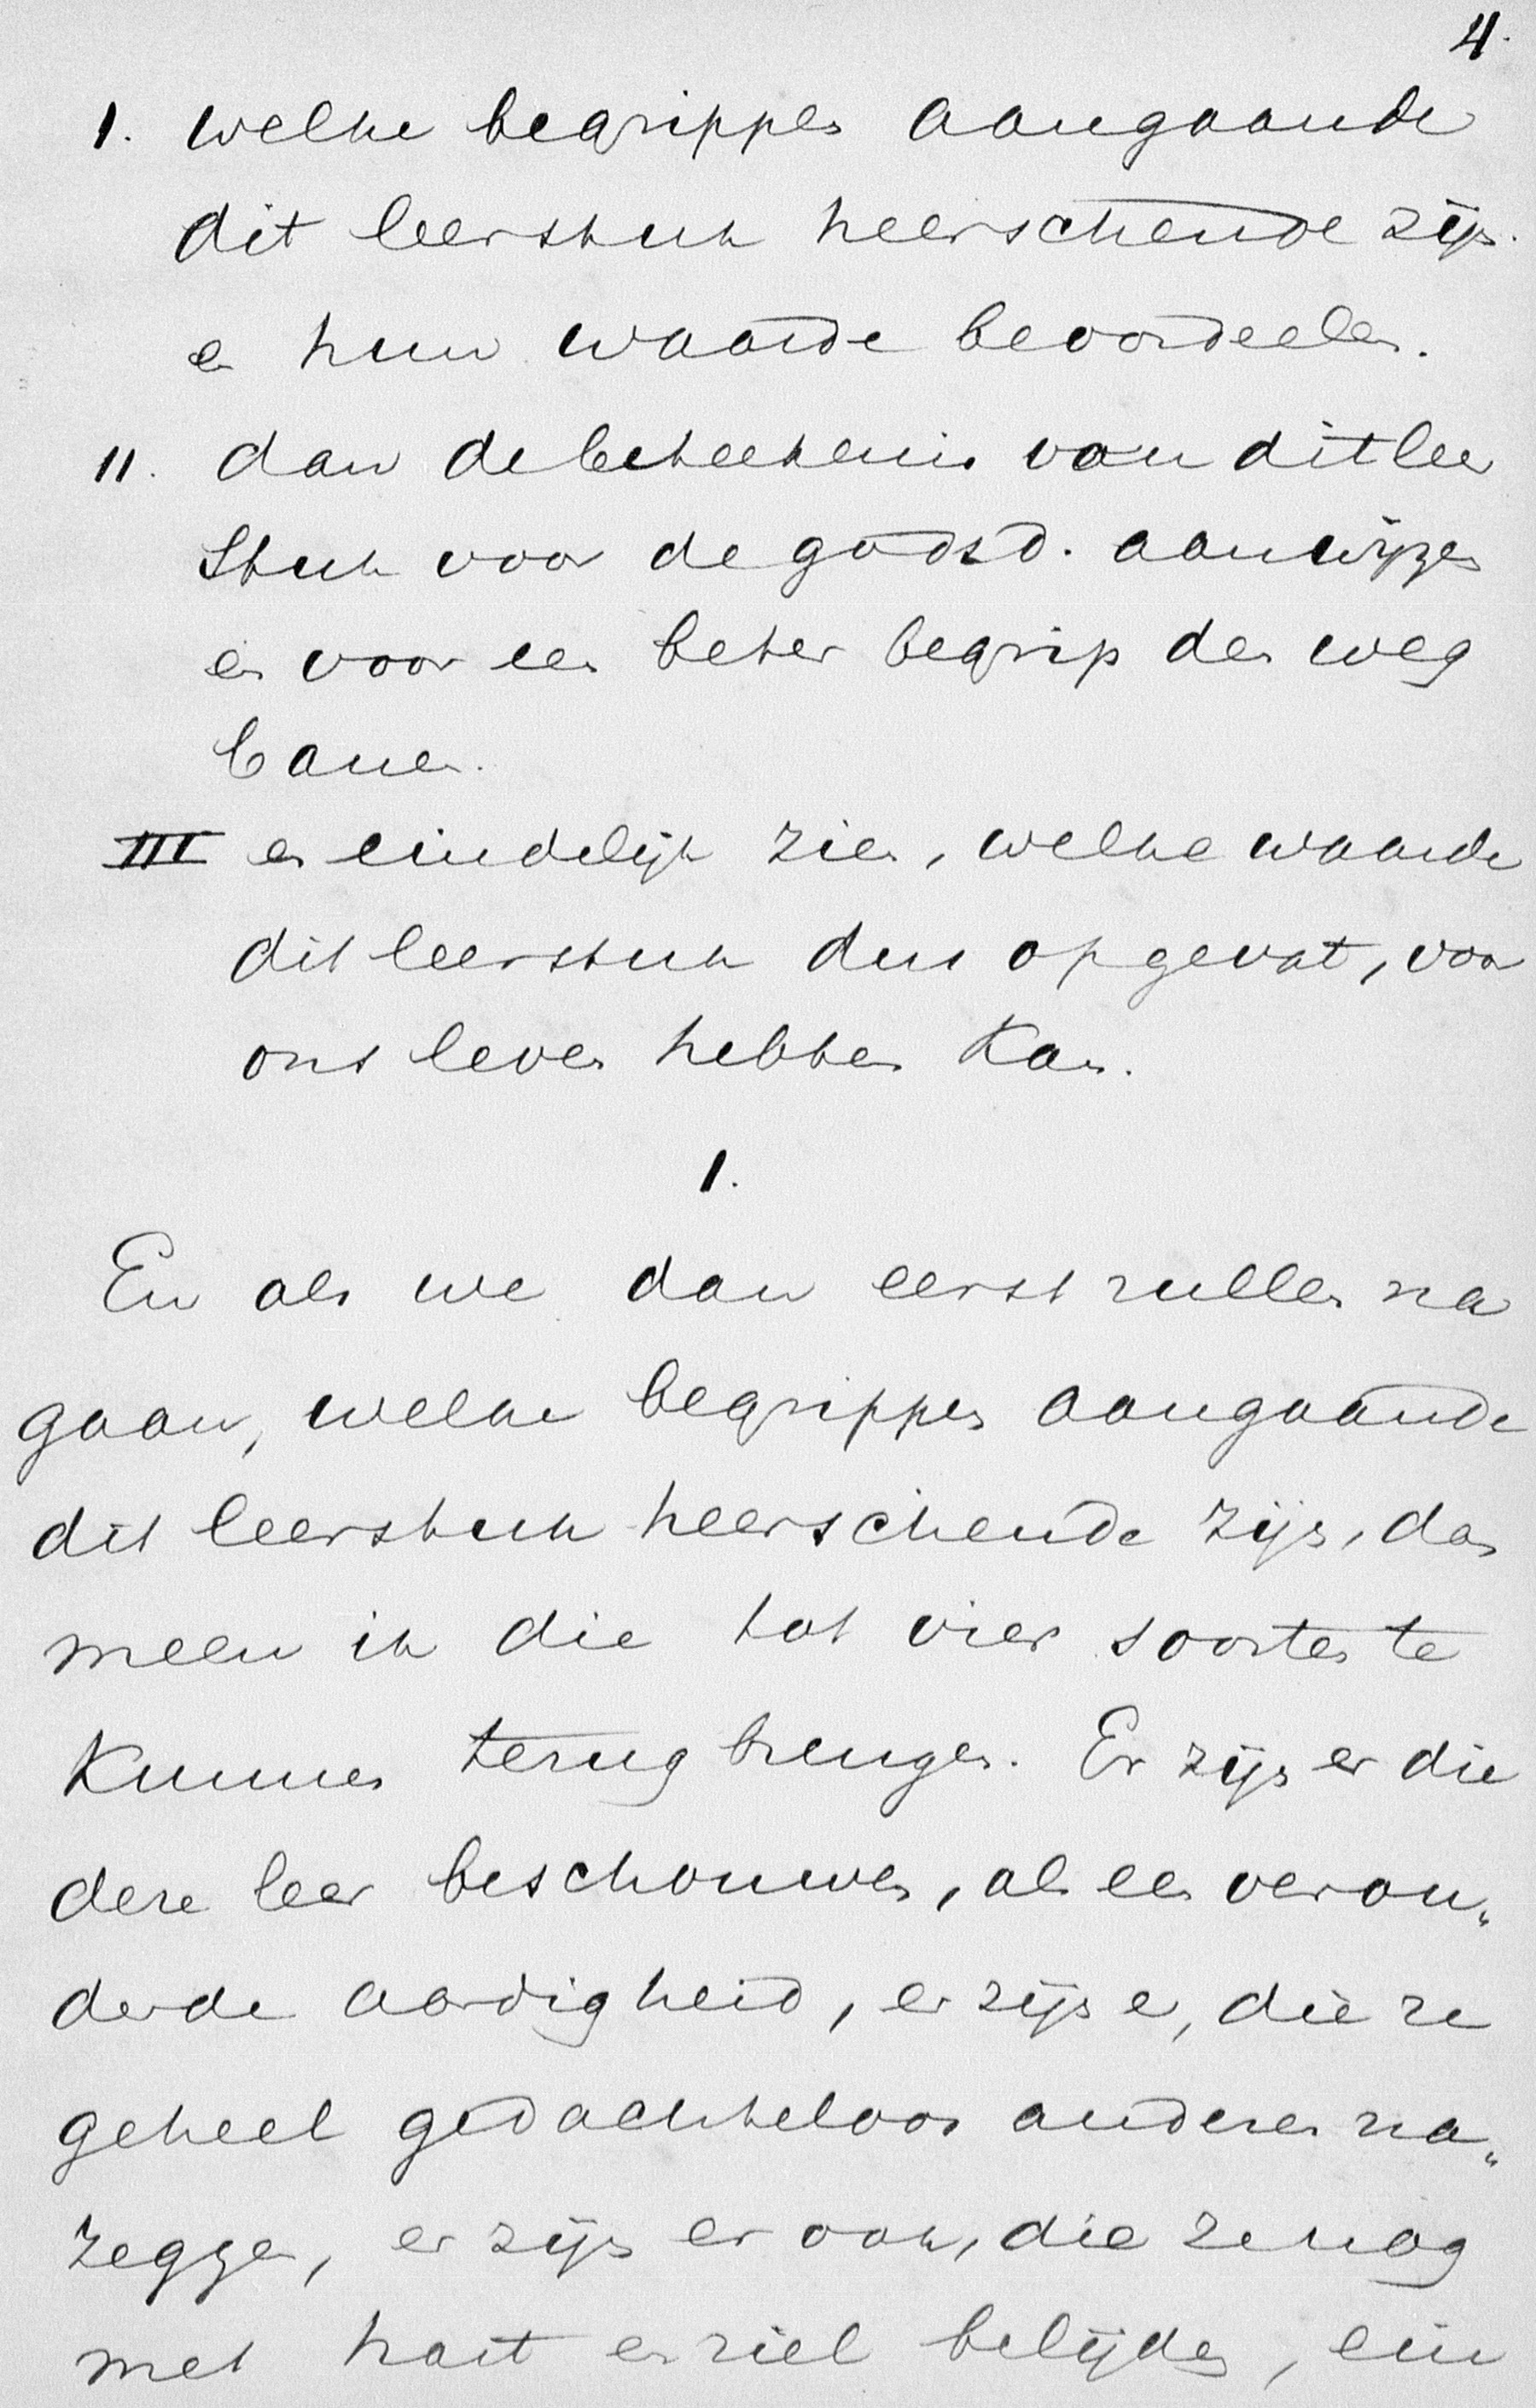 4.
I. welke begrippen aangaande
dit leerstuk heerschende zijn.
en hun waarde beoordeelen.
II. dan de beteekenis van dit leer
stuk voor de godsd. aanwijzen
en voor een beter begrip den weg
banen.
III en eindelijk zien, welke waarde
dit leerstuk dus opgevat, voor
ons leven hebben kan.
I.
En als we dan eerst zullen na
gaan, welke begrippen aangaande
dit leerstuk heerschende zijn, dan
meen ik die tot vier soorten te
kunnen terug brengen. Er zijn er die
deze leer beschouwen, als een verou„
derde aardigheid, er zijn er, die ze
geheel gedachteloos anderen na„
zeggen, er zijn er ook, die ze nog
met hart en ziel belijden, ein